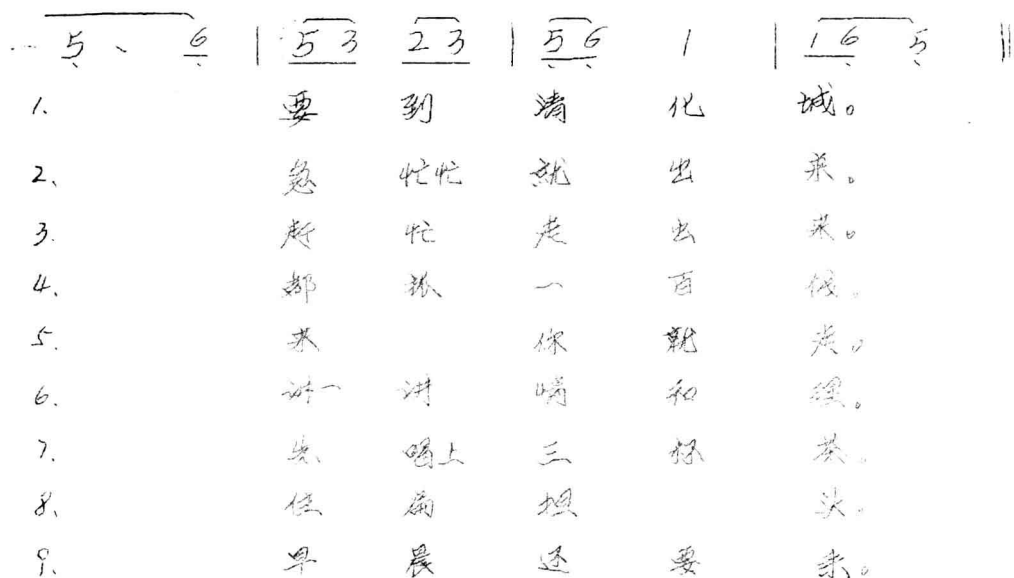 5 、 6 | 5 3 2 3 | 5 6 1 | 1 6 5 ‖
1. 要到清化城。
2、 急忙忙就出来。
3. 赶忙走出来。
4、 都派一百
5. 来你就走。
6、 讲一讲 和
7、 先喝上三杯茶。
8、 住扁担头。
9、 早晨还要来。